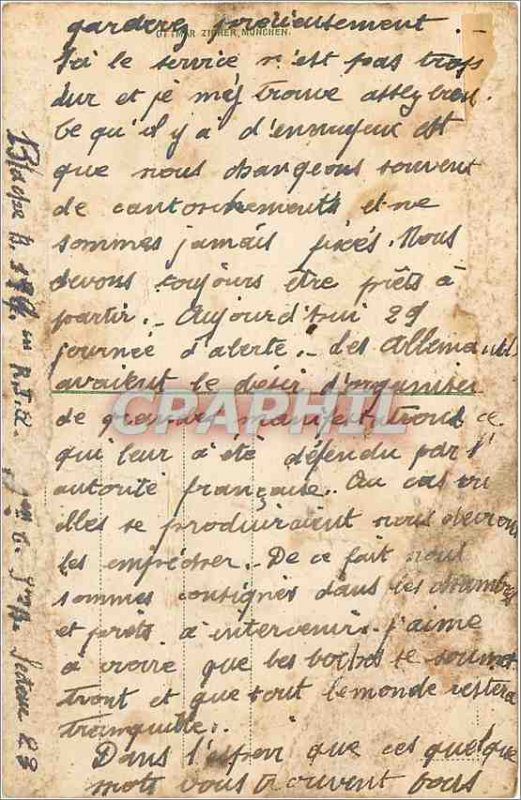 garderez précieusement.
OTTMAR ZIEHER, MÜNCHEN.
Ici le service n'est pas trop
dur et je m'y trouve assez bien.
Ce qu'il y a d'ennuyeux est
que nous changeons souvent
de cantonnements et ne
sommes jamais fixés. Nous
devons toujours être prêts à
partir. - Aujourd'hui 29
journée d'alerte. - Les Allemands
avaient le désir d'organiser
de grandes manifestations ce
qui leur a été défendu par l'
autorité française. Au cas où
elles se produiraient nous devrons
les empêcher. - De ce fait nous
sommes consignés dans les chambres
et prêts à intervenir. J'aime
à croire que les boches se soumet
tront et que tout le monde restera
tranquille.
Dans l'espoir que ces quelques
mots vous trouvent tous
CPARHIL
Secteur